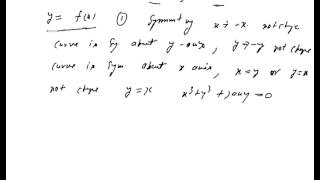 y = f(x) ① Symmetry x → -x not chge
curve is Sy about y-axis, y → -y not chge
curve is Sym about x axis, x = y or y = x
not chge y = x x³+y³+3axy=0